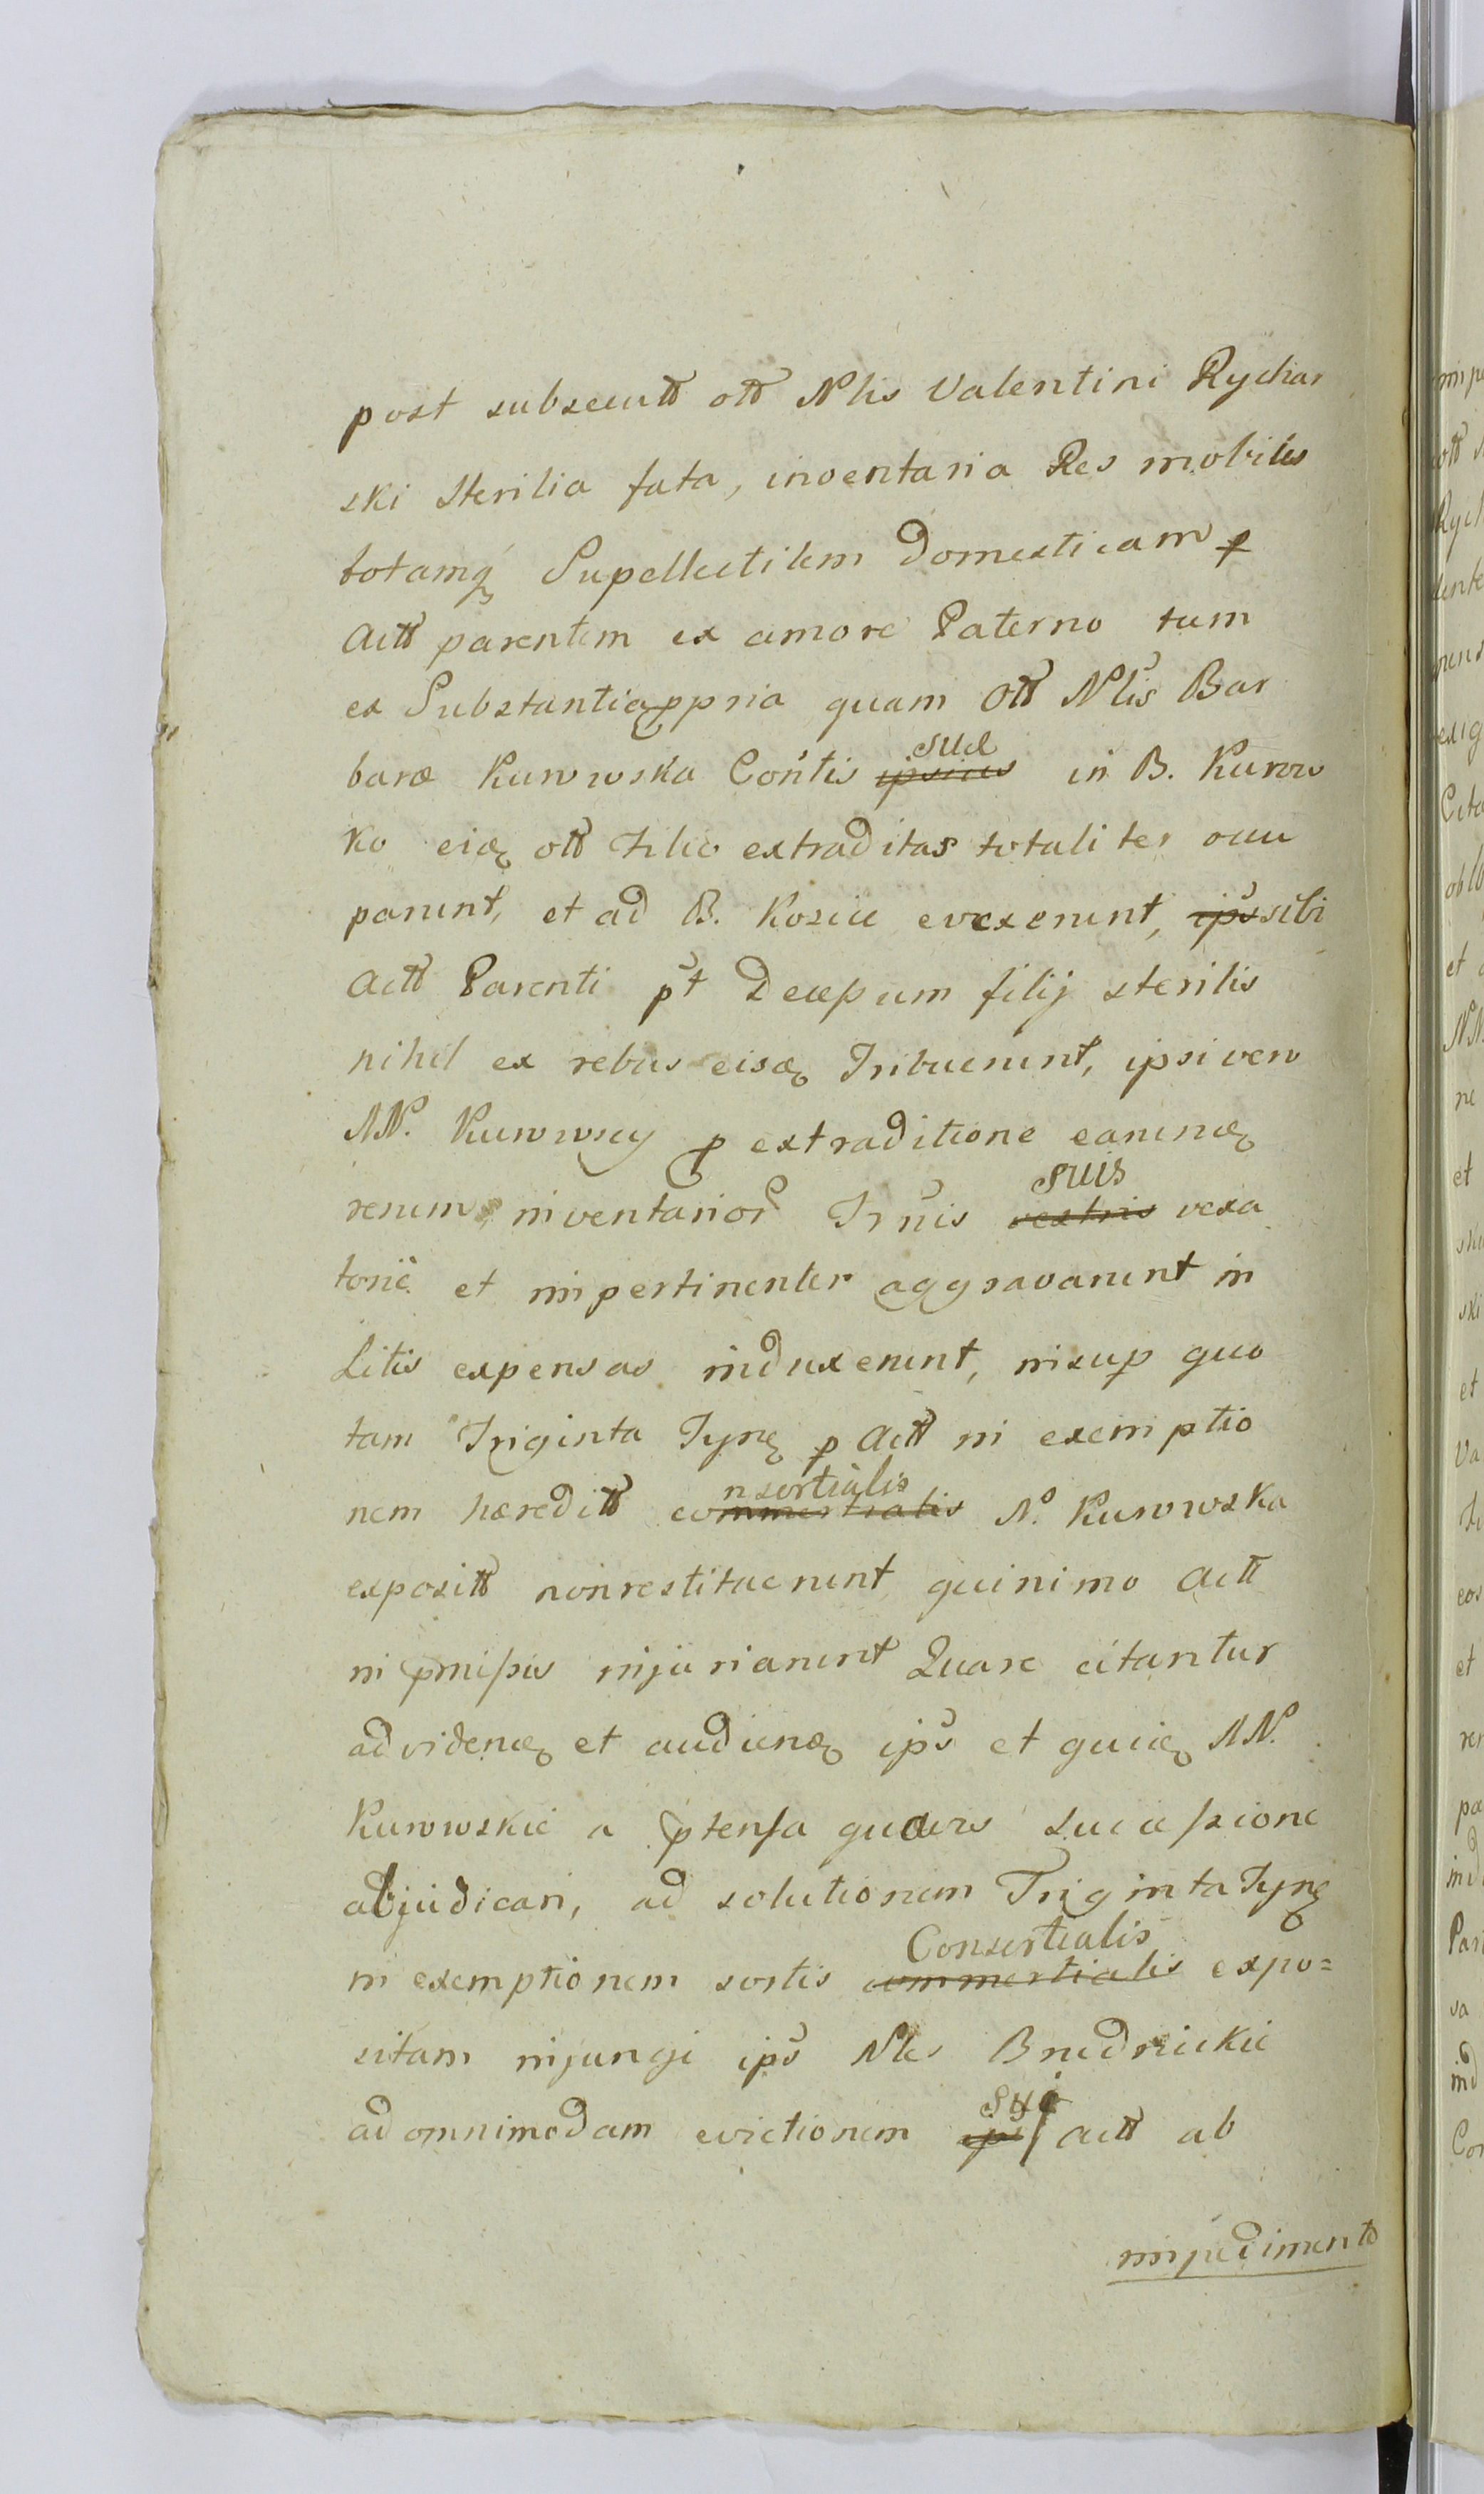 post subsecutt ott Nlis Valentini Rychar
ski sterilia fata, inventaria Res mobiles
totamq Supellectilem Domesticam p
actt parentem ex amore Paterno tum
ex Substantia ppria quam ott Nlis Bar
baræ Kurowska Contis ipsius suæ in B. Kurow
ko eidq ott Filio extraditas totaliter occu
parunt, et ad B. Kozice evexerunt, ips sibi
actt Parenti pt Decessum filij sterilis
nihil ex rebus eisdq Tribuerunt, ipsi vero
NN. Kurowscy p extraditione earundq
rerum inventarior Trnis vestris suis vexa
torie et impertinenter aggravarunt in
Litis expensas induxerunt, insup quo
tam Triginta Tynq p actt in exemptio
nem hæreditt commertialis nsortialis N. Kurowska
expositt non restituerunt quinimo actt
in pmissis injuriarunt Quare citantur
ad videndq et audiendq ips et quidq NN.
Kurowskie a ptensa quavis Successione
abjudicari, ad solutionem Triginta Tynq
in exemptionem sortis commertialis Consortialis expo=
sitam injungi ips Nles Brudnickie
ad omnimodam evictionem ips sui actt ab
impedimento